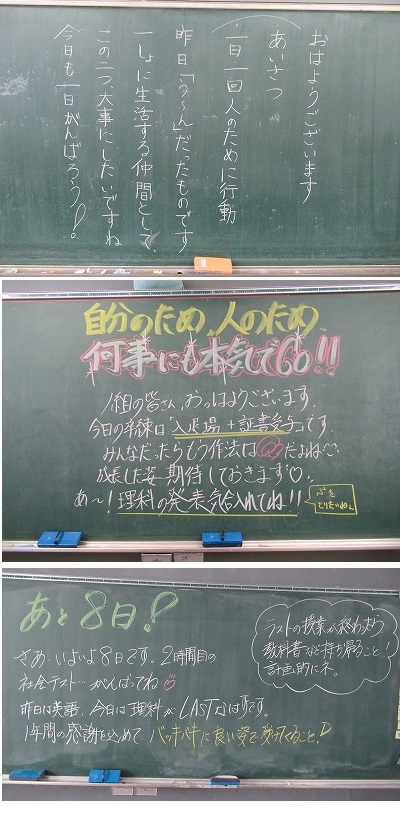 おはようございます
あいさつ
一日一回人のために行動
昨日「う〜ん」だったものです
一しょに生活する仲間として、
この二つ、大事にしたいですね
今日も一日がんばろう！
自分のため、人のため、
何事にも本気でGO!!
1組の皆さん、おっはようございます。
今日の卒練は「入退場+証書授与」です。
みんなだったらもう作法は
だよね
成長した姿 期待しておきます♡。
あ〜!理科の発表気合入れてね!!
とりたいね。
あと8日!
さあ、いよいよ8日です。2時間目の
社会テスト…がんばってね
昨日は英語、今日は理科がLASTのはずです。
1年間の感謝を込めて バッキバキに良い姿で受けてくること!
ラストの授業が終わったら
教科書など持ち帰ること!
計画的にネ。